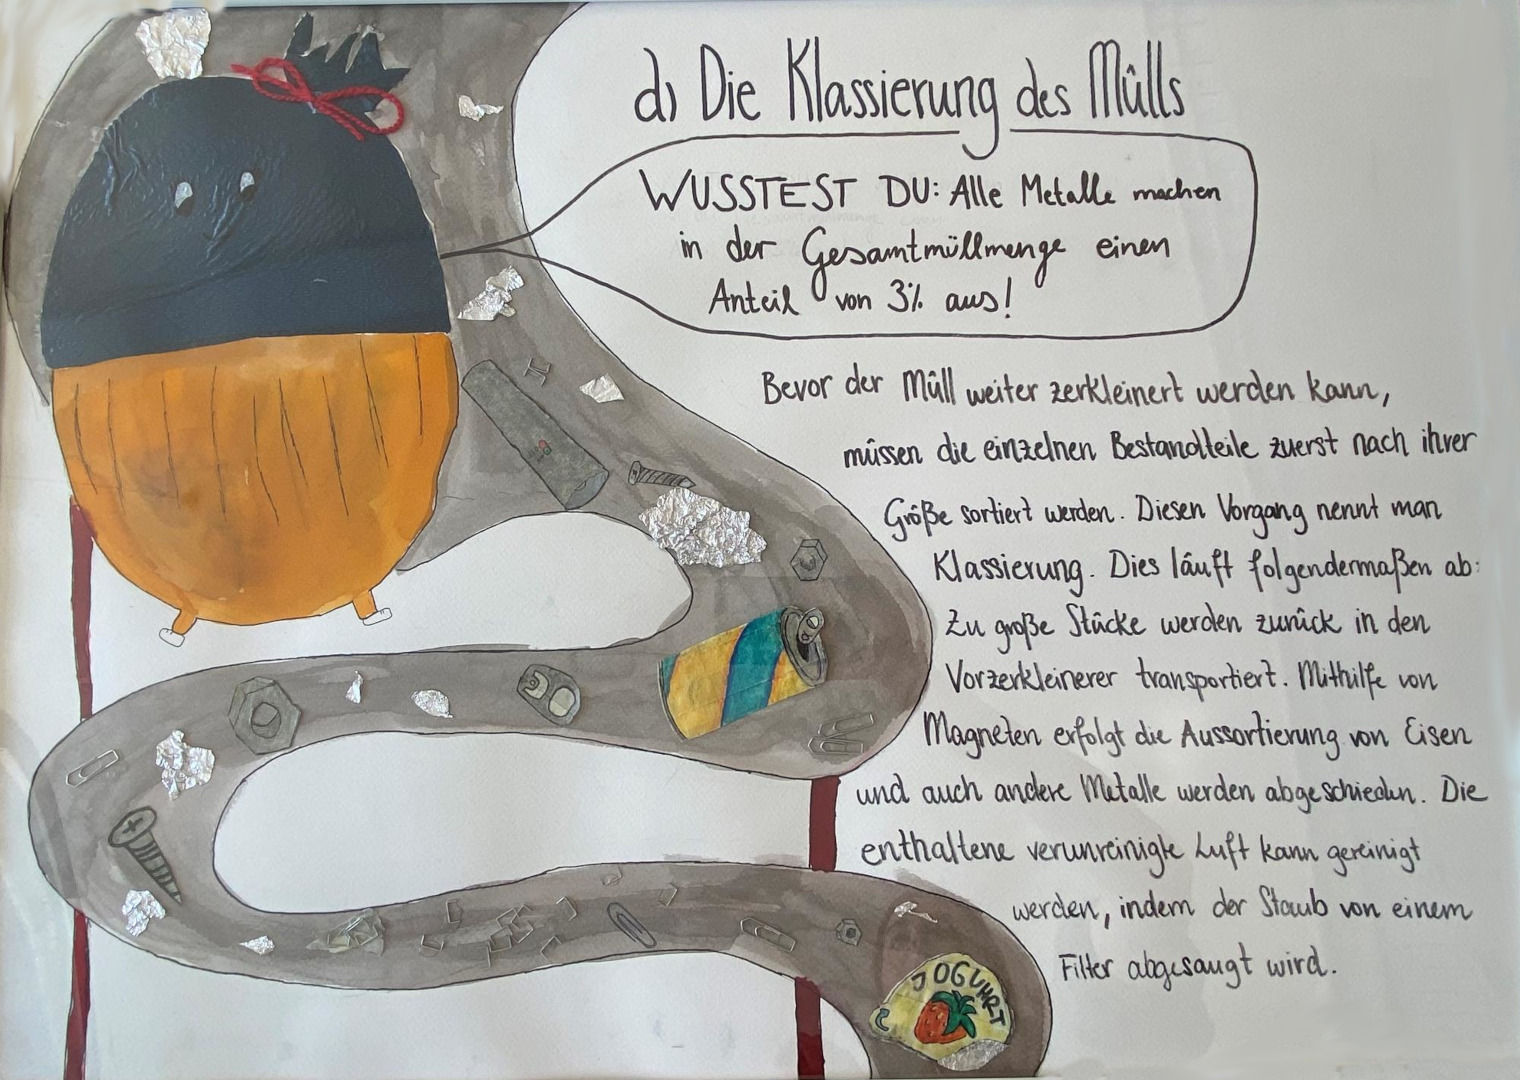 d) Die Klassierung des Mülls
WUSSTEST DU: Alle Metalle machen
in der Gesamtmüllmenge einen
Anteil von 3% aus!
Bevor der Müll weiter zerkleinert werden kann,
müssen die einzelnen Bestandteile zuerst nach ihrer
Größe sortiert werden. Diesen Vorgang nennt man
Klassierung. Dies läuft folgendermaßen ab:
Zu große Stücke werden zurück in den
Vorzerkleinerer transportiert. Mithilfe von
Magneten erfolgt die Aussortierung von Eisen
und auch andere Metalle werden abgeschieden. Die
enthaltene verunreinigte Luft kann gereinigt
werden, indem der Staub von einem
Filter abgesaugt wird.
JOGUHRT